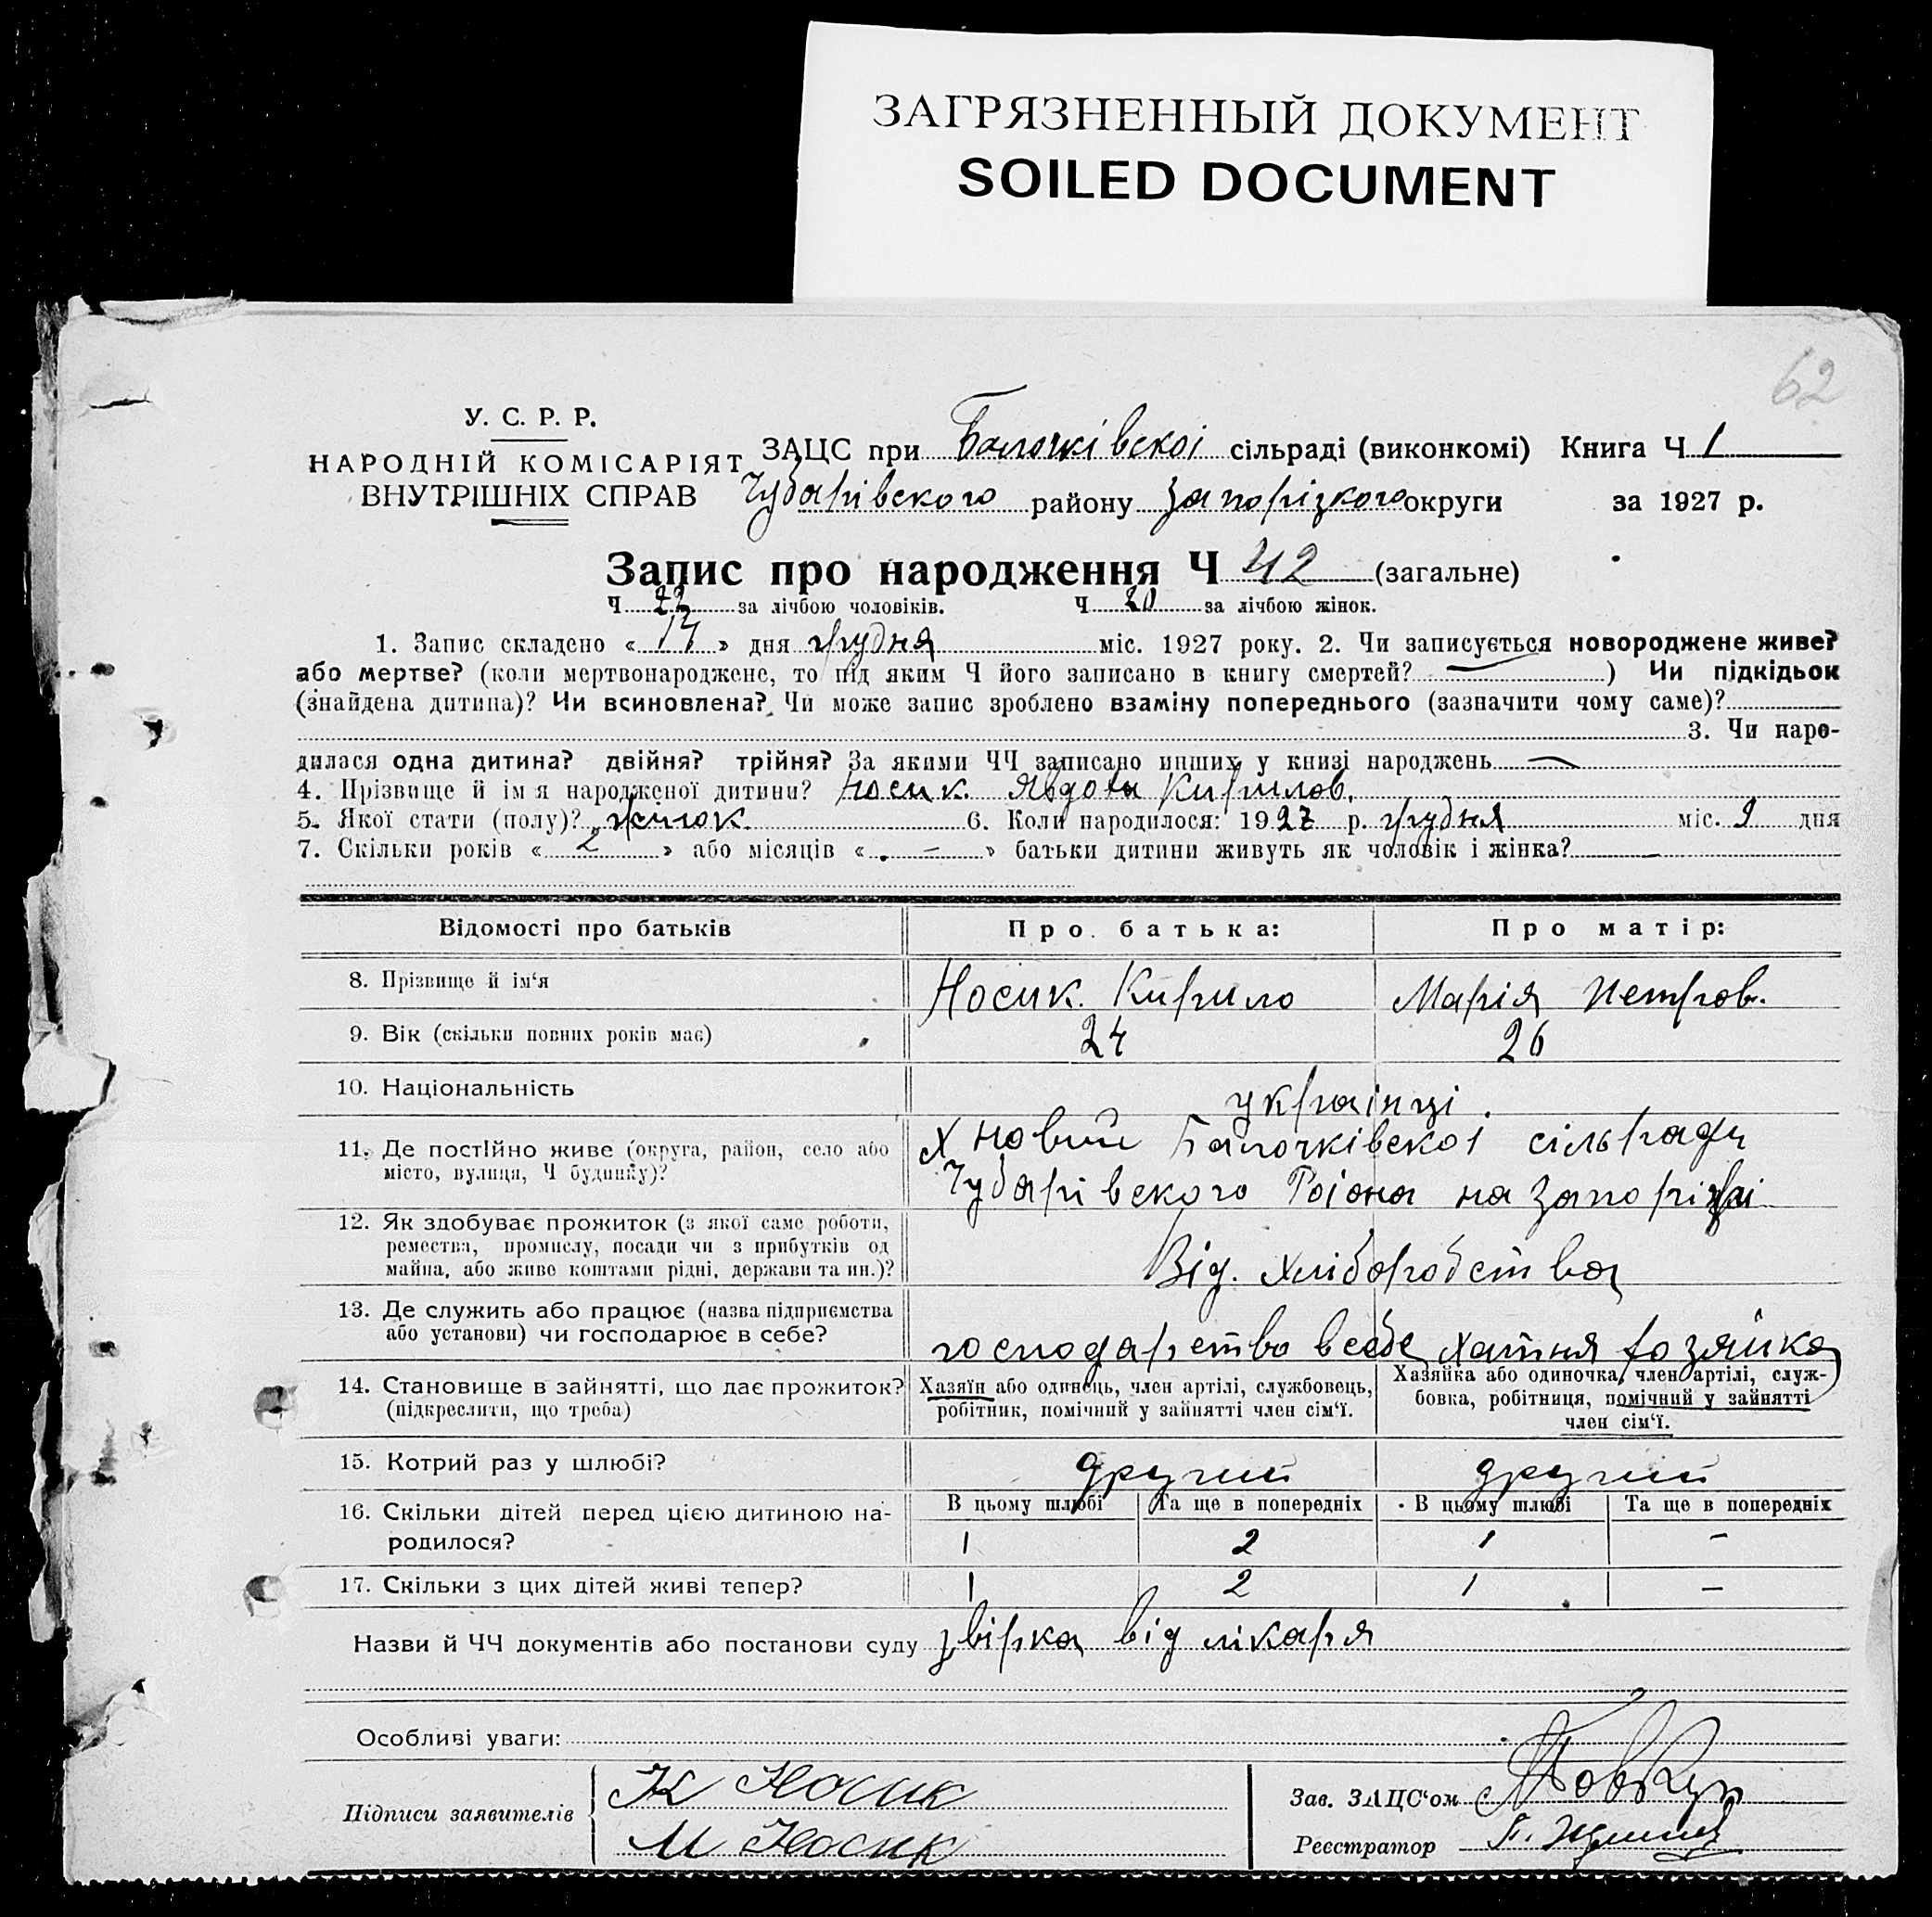 ЗАГРЯЗНЕННЫЙ ДОКУМЕНТ
SOILED DOCUMENT
62
У. С. Р. Р.
НАРОДНІЙ КОМІСАРІЯТ
ВНУТРІШНІХ СПРАВ
ЗАЦС при Балочківскоі сільраді (виконкомі) Книга Ч 1
Чубарівского району Запорізкого округи за 1927 р.
Запис про народження Ч 42 (загальне)
Ч 22 за лічбою чоловіків. Ч 20 за лічбою жінок.
1. Запис складено « 17 » дня грудня міс. 1927 року. 2. Чи записується новороджене живе?
або мертве? (коли мертвонароджене, то під яким Ч його записано в книгу смертей? — ) Чи підкідьок
(знайдена дитина)? Чи всиновлена? Чи може запис зроблено взаміну попереднього (зазначити чому саме)?
3. Чи наро-
дилася одна дитина? двійня? трійня? За якими ЧЧ записано инших у книзі народжень —
4. Прізвище й ім я народженої дитини? Носик Явдоха Кирилов.
5. Якої стати (полу)? жінок 6. Коли народилося: 1927 р. грудня міс. 9 дня
7. Скільки років « 2 » або місяців « - » батьки дитини живуть як чоловік і жінка? -
Відомості про батьків Про батька: Про матір:
8. Прізвище й ім‘я Носик Кирило Марія Петров.
9. Вік (скільки повних років має) 24 26
10. Національність украінці.
11. Де постійно живе (округа, район, село або Х Новий Балочківскоі сільради
місто, вулиця, Ч будинку)? Чубарівского Раіона на Запоріжжі
12. Як здобуває прожиток (з якої саме роботи,
ремества, промислу, посади чи з прибутків од Від. Хліборобства
майна, або живе коштами рідні, держави та ин.)?
13. Де служить або працює (назва підприємства
або установи) чи господарює в себе? господарство всебе хатня хозяйка
14. Становище в зайнятті, що дає прожиток? Хазяїн або одинець, член артілі, службовець, Хазяйка або одиночка, член артілі, служ-
(підкреслити, що треба) робітник, помічний у зайнятті член сім‘ї. бовка, робітниця, помічний у зайнятті
член сім‘ї.
15. Котрий раз у шлюбі? другий другий
16. Скільки дітей перед цією дитиною на- В цьому шлюбі Та ще в попередніх В цьому шлюбі Та ще в попередніх
родилося? 1 2 1 -
17. Скільки з цих дітей живі тепер? 1 2 1 -
Назви й ЧЧ документів або постанови суду звірка від лікаря
Особливі уваги:
Підписи заявителів К Носик
М Носик
Зав. ЗАЦС‘ом
Реєстратор